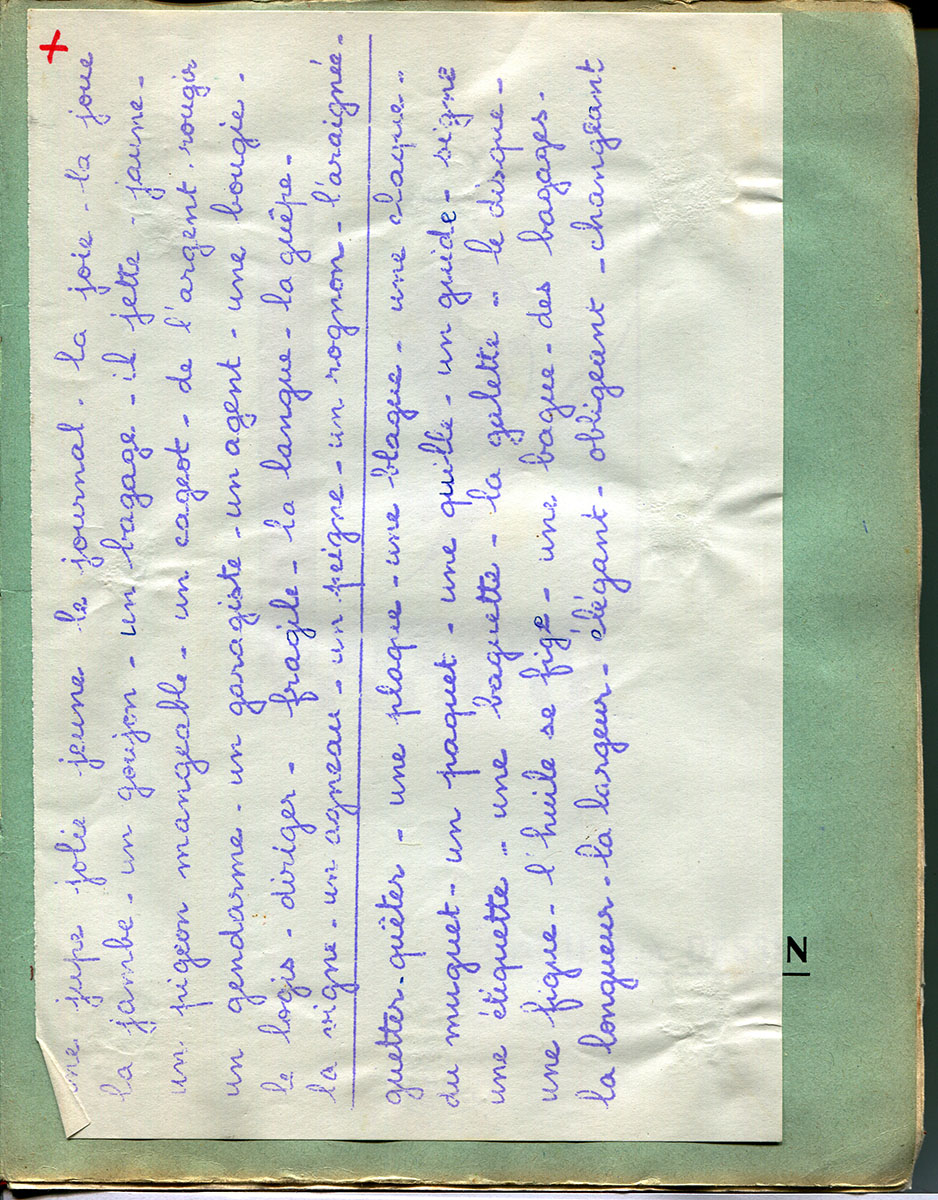 une jupe jolie jeune le journal. la joie - la joue
la jambe - un goujon - un bagage - il jette - jaune -
un pigeon mangeable - un cageot - de l'argent. rougir
un gendarme - un garagiste - un agent - une bougie.
le logis - diriger - fragile - la langue - la guêpe -
la vigne - un agneau - un peigne - un rognon - l'araignée -
guetter - quêter - une plaque - une blague - une claque -
du muguet - un paquet - une quille - un guide - signe
une étiquette - une baguette - la galette - le disque -
une figue - l'huile se fige - une bague - des bagages.
la longueur - la largeur - élégant - obligeant - changeant
+
N